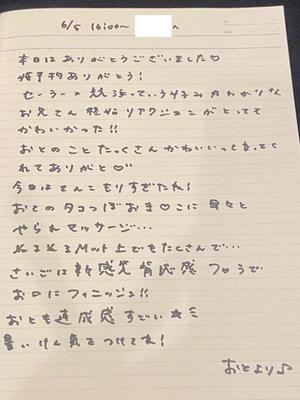 6/5 16:00〜
本日はありがとうございました♡
指予約ありがとう!
セーラー×競泳っていう好み丸わかりな
お兄さん
リアクションがとっても
かわいかった!!
おとのことたっくさんかわいいって言ってく
れてありがと♡
今日はてんこもりすぎたね!
おとのタコつぼおま♡こに早々と
やられマッサージ…
ぬるぬるMット上でもたくさんで…
さいごは新感覚背応感フロうで
お口にフィニッシュ!!
おとも達成感すごい☆ミ
暑いけん気をつけてね!
おとより♪